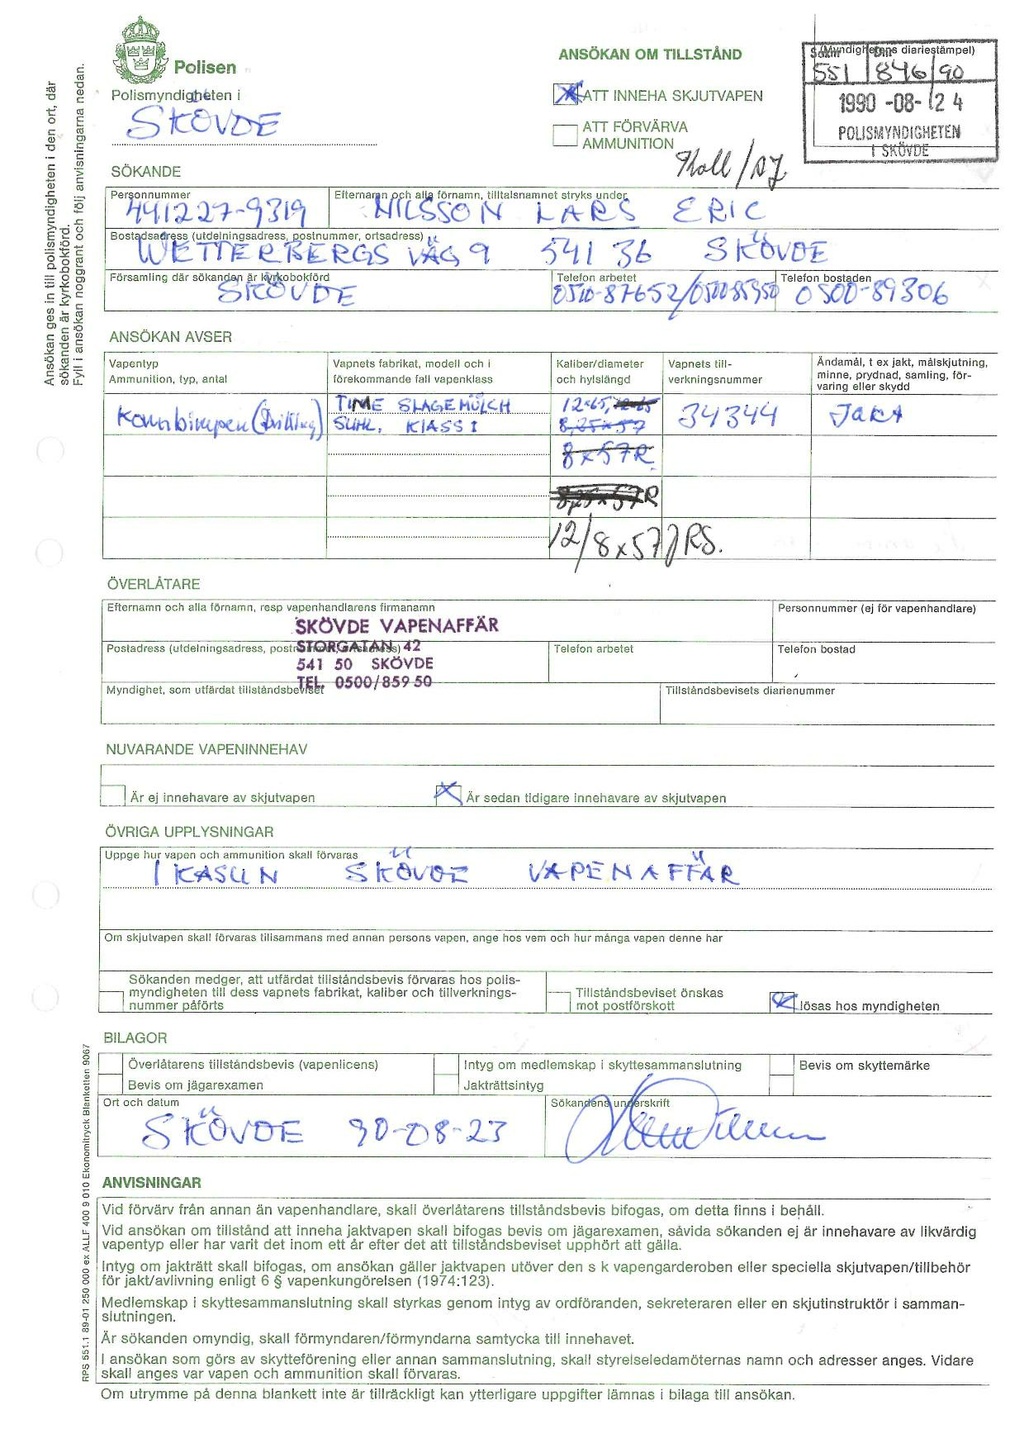 Polisen
Polismyndigheten i
SKÖVDE
ANSÖKAN OM TILLSTÅND
ATT INNEHA SKJUTVAPEN
ATT FÖRVÄRVA
AMMUNITION
(Myndighetens diariestämpel)
Saknr Dnr
551 846/90
1990 -08- 24
POLISMYNDIGHETEN
I SKÖVDE
Ansökan ges in till polismyndigheten i den ort, där
sökanden är kyrkobokförd.
Fyll i ansökan noggrant och följ anvisningarna nedan.
SÖKANDE
Personnummer
441227-9319
Efternamn och alla förnamn, tilltalsnamnet stryks under
NILSSON LARS ERIC
Bostadsadress (utdelningsadress, postnummer, ortsadress)
WETTERBERGS VÄG 9 541 36 SKÖVDE
Församling där sökanden är kyrkobokförd
SKÖVDE
Telefon arbetet
0510-87652/050085950
Telefon bostaden
0500-89306
ANSÖKAN AVSER
Vapentyp
Ammunition, typ, antal
Vapnets fabrikat, modell och i
förekommande fall vapenklass
Kaliber/diameter
och hylslängd
Vapnets till-
verkningsnummer
Ändamål, t ex jakt, målskjutning,
minne, prydnad, samling, för-
varing eller skydd
Kombivapen (Drilling)
SUHL, KLASS I
12-65,
8,25x57
34344
Jakt
8x57R
8,25x57R
12/8x57JRS.
ÖVERLÅTARE
Efternamn och alla förnamn, resp vapenhandlarens firmanamn
Personnummer (ej för vapenhandlare)
SKÖVDE VAPENAFFÄR
STORGATAN 42
541 50 SKÖVDE
TEL. 0500/859 50
Postadress (utdelningsadress, postnummer, ortsadress)
Telefon arbetet
Telefon bostad
Myndighet, som utfärdat tillståndsbeviset
Tillståndsbevisets diarienummer
NUVARANDE VAPENINNEHAV
Är ej innehavare av skjutvapen
Är sedan tidigare innehavare av skjutvapen
ÖVRIGA UPPLYSNINGAR
Uppge hur vapen och ammunition skall förvaras
I KASUN SKÖVDE VAPENAFFÄR
Om skjutvapen skall förvaras tillsammans med annan persons vapen, ange hos vem och hur många vapen denne har
Sökanden medger, att utfärdat tillståndsbevis förvaras hos polis-
myndigheten till dess vapnets fabrikat, kaliber och tillverknings-
nummer påförts
Tillståndsbeviset önskas
mot postförskott
lösas hos myndigheten
BILAGOR
Överlåtarens tillståndsbevis (vapenlicens)
Intyg om medlemskap i skyttesammanslutning
Bevis om skyttemärke
Bevis om jägarexamen
Jakträttsintyg
Ort och datum
SKÖVDE 90-08-23
Sökandens underskrift
ANVISNINGAR
Vid förvärv från annan än vapenhandlare, skall överlåtarens tillståndsbevis bifogas, om detta finns i behåll.
Vid ansökan om tillstånd att inneha jaktvapen skall bifogas bevis om jägarexamen, såvida sökanden ej är innehavare av likvärdig
vapentyp eller har varit det inom ett år efter det att tillståndsbeviset upphört att gälla.
Intyg om jakträtt skall bifogas, om ansökan gäller jaktvapen utöver den s k vapengarderoben eller speciella skjutvapen/tillbehör
för jakt/avlivning enligt 6 § vapenkungörelsen (1974:123).
Medlemskap i skyttesammanslutning skall styrkas genom intyg av ordföranden, sekreteraren eller en skjutinstruktör i samman-
slutningen.
Är sökanden omyndig, skall förmyndaren/förmyndarna samtycka till innehavet.
I ansökan som görs av skytteförening eller annan sammanslutning, skall styrelseledamöternas namn och adresser anges. Vidare
skall anges var vapen och ammunition skall förvaras.
Om utrymme på denna blankett inte är tillräckligt kan ytterligare uppgifter lämnas i bilaga till ansökan.
RPS 551.1 89-01 250 000 ex ALLF 400 9 010 Ekonomitryck Blanketten 9067